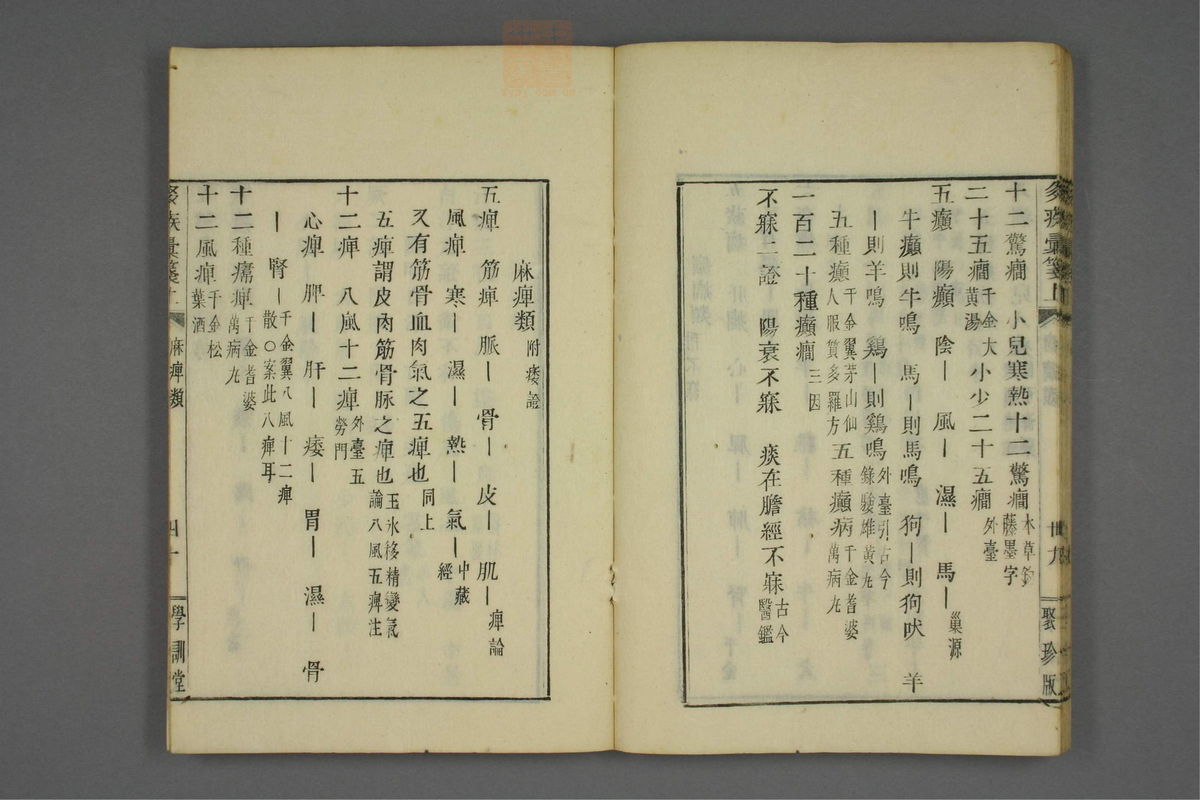 十二驚癎 小兒寒熱十二驚癎 本草鈎藤墨字
二十五癎 千金大黃湯 大小少二十五癎 外臺
五癲 陽癲 陰｜ 風｜ 濕｜ 馬｜ 巢源
牛癲則牛鳴 馬｜則馬鳴 狗｜則狗吠 羊
｜則羊鳴鷄｜則鷄鳴 外臺引古今錄驗雄黃丸
五種癲 千金翼茅山仙人服質多羅方 五種癲病 千金耆婆萬病丸
一百二十種癲癎 三因
不寐二證 陽衰不寐 痰在膽經不寐 古今醫鑑
彙箋上
卅九
聚珍版
麻痺類 附痿證
五痺 筋痺 脈｜ 骨｜ 皮｜ 肌｜ 痺論
風痺 寒｜ 濕｜ 熱｜ 氣｜ 中藏經
又有筋骨血肉氣之五痺也 同上
五痺謂皮肉筋骨脈之痺也 玉氷移精變氣論八風五痺注
十二痺 八風十二痺 外臺五勞門
心痺 脾｜ 肝｜ 痿｜ 胃｜ 濕｜ 骨
｜ 腎｜ 千金翼八風十二痺散○案此八痺耳
十二種痛痺 千金耆婆萬病丸
十二風痺 千金松葉酒
麻痺類
四十
學訓堂